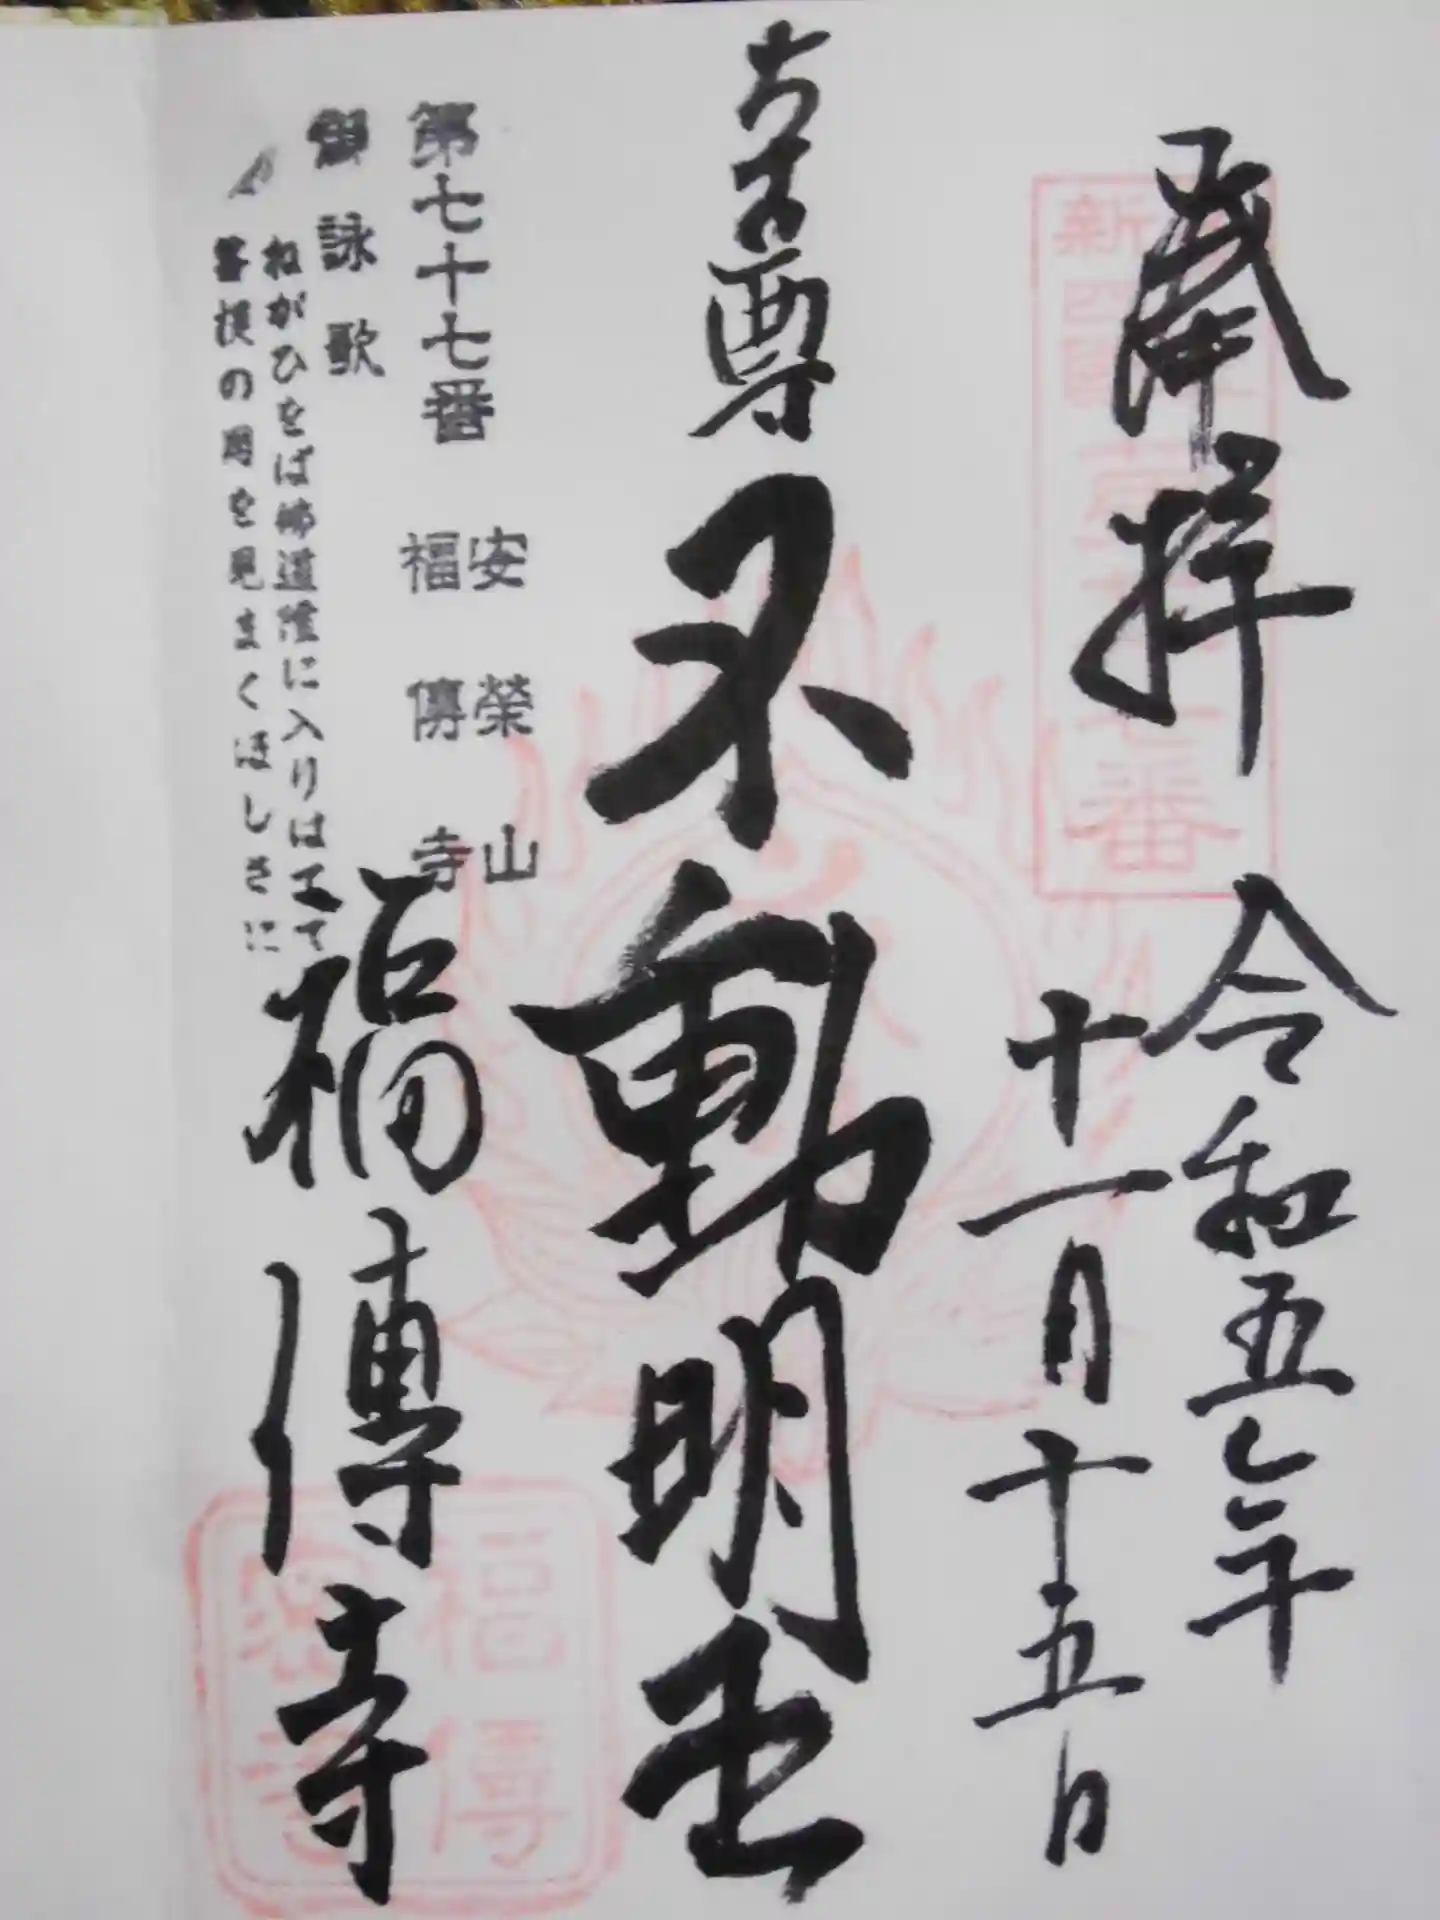 奉拝
令和五年
十一月十五日
尊
不動明王
安榮山
福傳寺
第七十七番
御詠歌
ねがひをば佛道隆に入りはてて
菩提の月を見まくほしさに
福傳寺
新四國
番
福傳